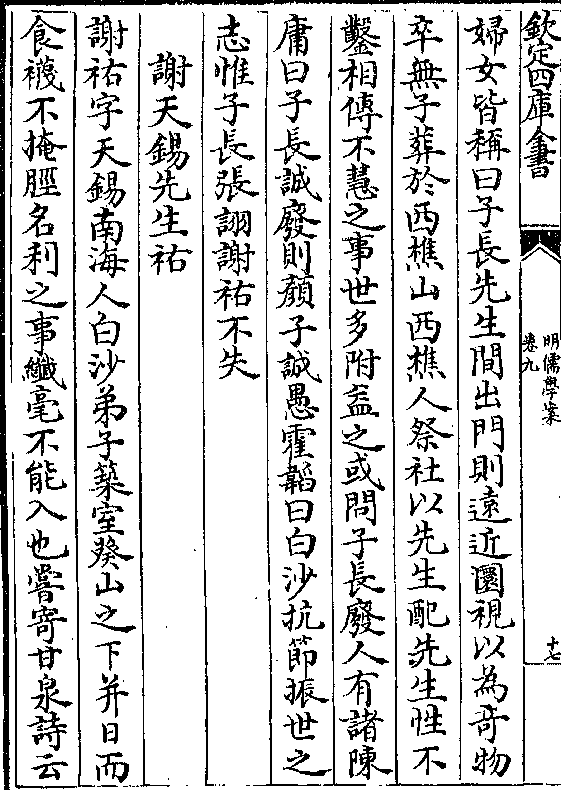 欽定四庫全書
明儒學案
卷九
十七
婦女皆稱曰子長先生間出門則遠近圜視以為奇物
卒無子葬於西樵山西樵人祭社以先生配先生性不
鑿相傳不慧之事世多附益之或問子長廢人有諸陳
庸曰子長誠廢則顔子誠愚霍韜曰白沙抗節振世之
志惟子長張詡謝祐不失
謝天錫先生祐
謝祐字天錫南海人白沙弟子築室葵山之下并日而
食襪不掩脛名利之事纖毫不能入也嘗寄甘泉詩云